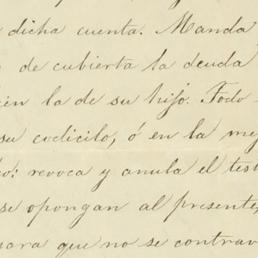 dicha cuenta. Manda
de cubierta la deuda
la de su hijo. Todo
su codicilo, ó en la
revoca y anula el
se opongan al presente,
para que no se